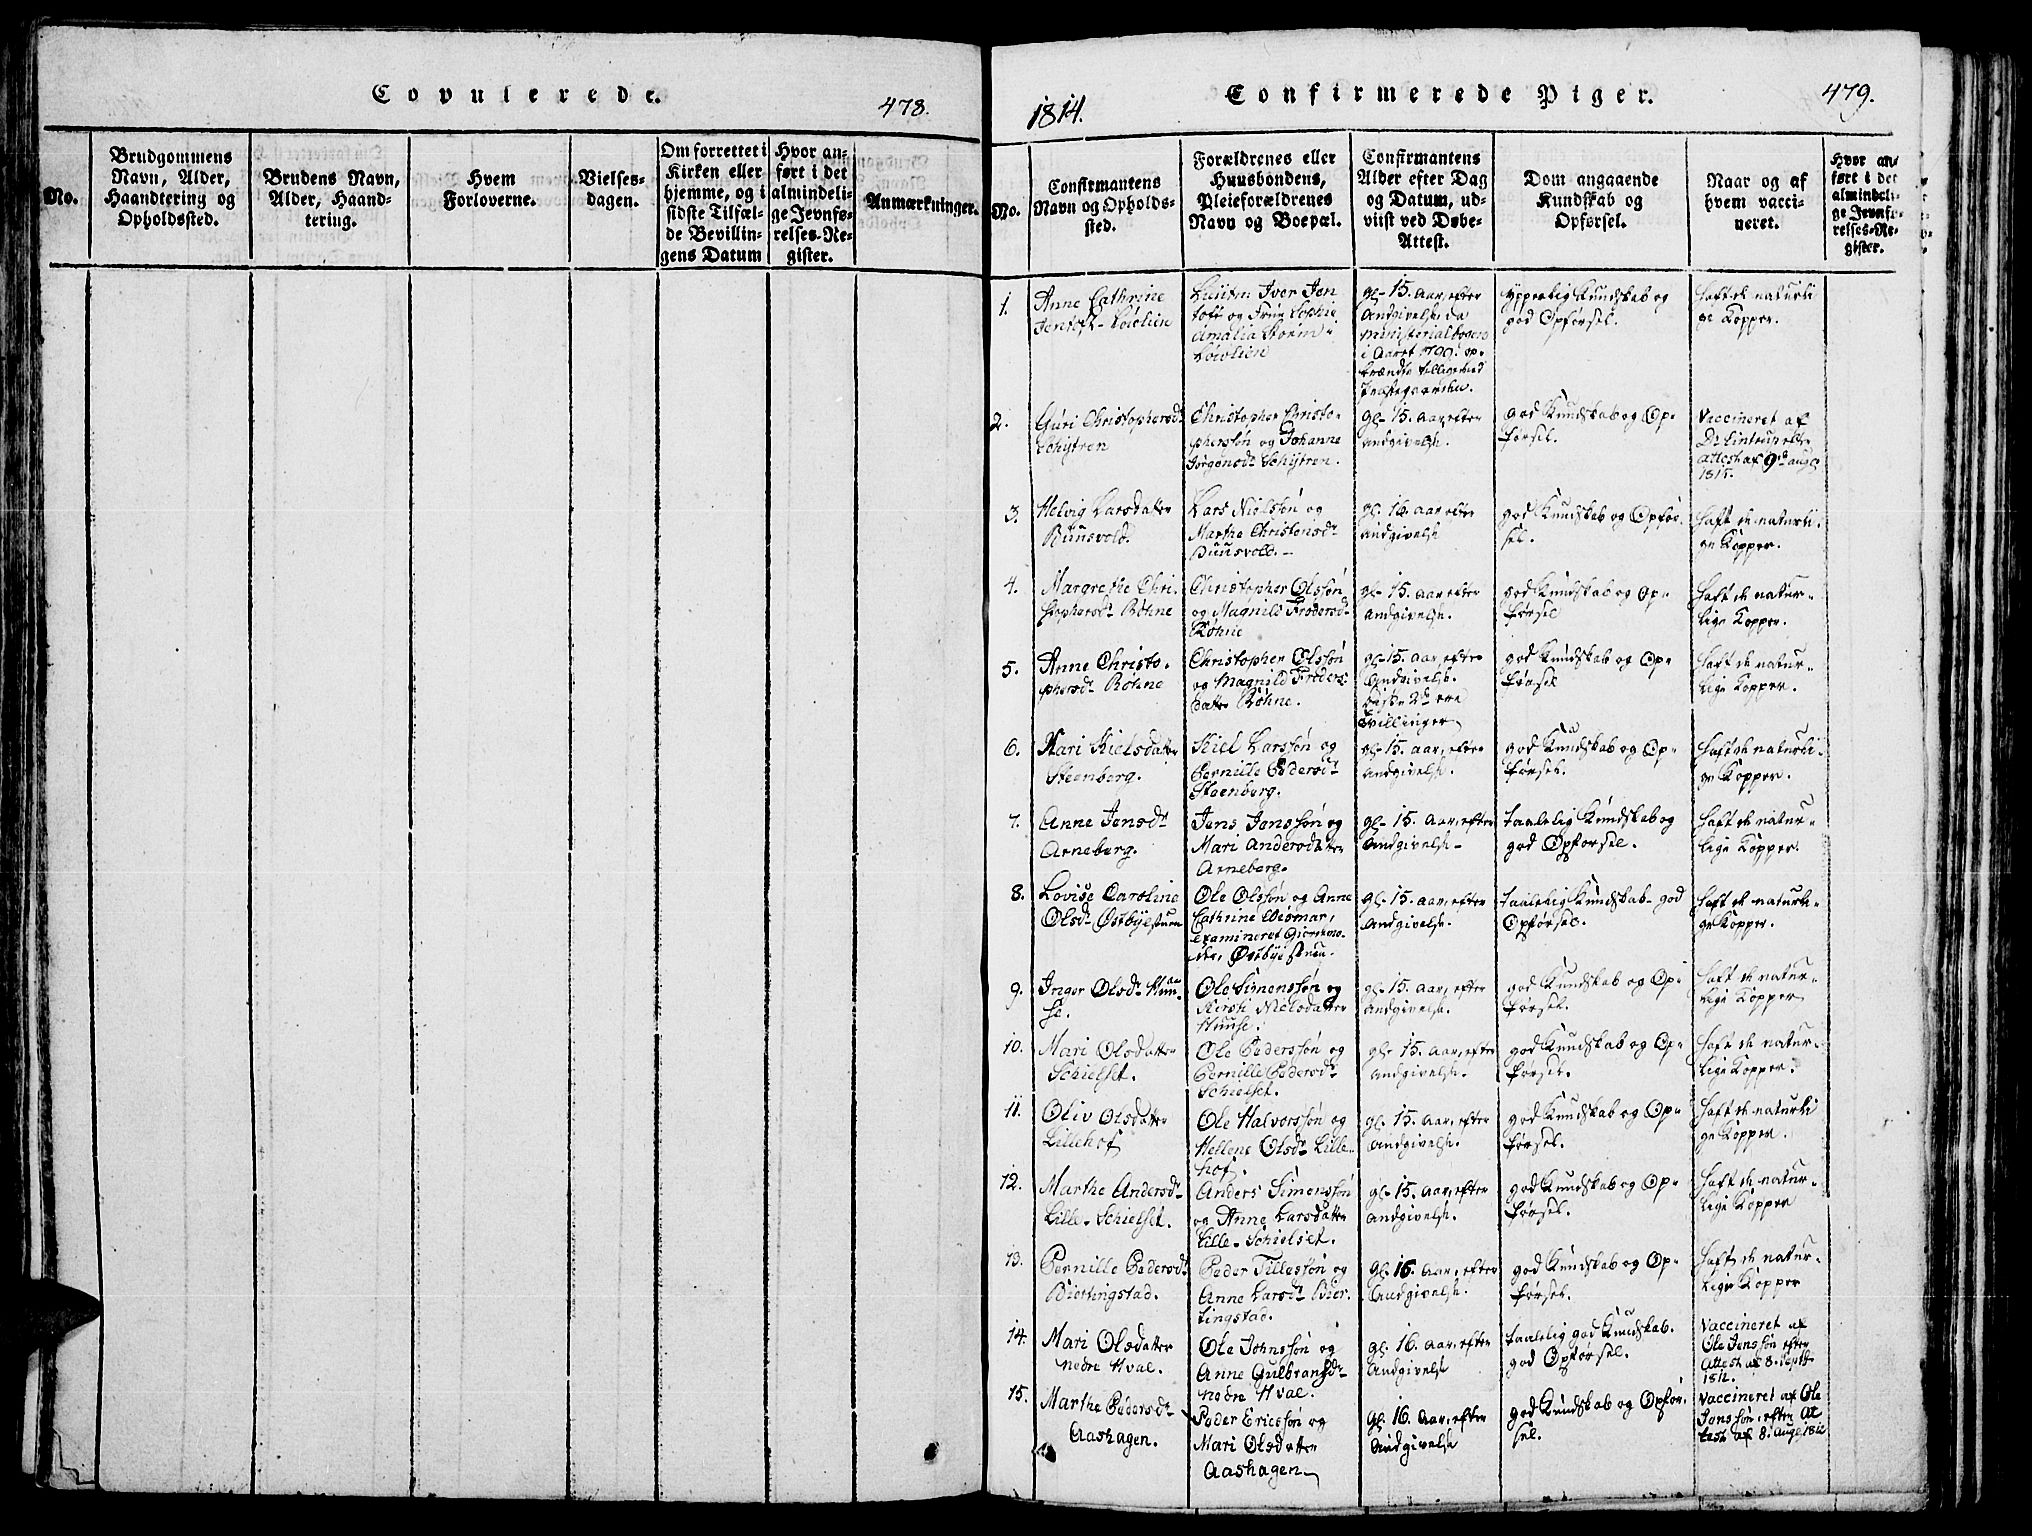 Copulerede.
478.
No.
Brudgommens
Navn, Alder,
Haandtering og
Opholdssted.
Brudens Navn,
Alder, Haand-
tering.
Hvem
Forloverne.
Vielses-
dagen.
Om forrettet i
Kirken eller
hjemme, og i
sidste Tilfæl-
de Bevillin-
gens Datum
Hvor an-
ført i det
almindeli-
ge Jevnfø-
relses-Re-
gister.
Anmærkninger.
1814.
Confirmerede Piger.
479.
No.
Confirmantens
Navn og Opholds-
sted.
Forældrenes eller
Huusbondens,
Pleieforældrenes
Navn og Boepæl.
Confirmantens
Alder efter Dag
og Datum, ud-
viist ved Døbe-
Attest.
Dom angaaende
Kundskab og
Opførsel.
Naar og af
hvem vacci-
neret.
Hvor an-
ført i det
almindeli-
ge Jevnfø-
relses-Re-
gister.
1.
Anne Cathrine
Iver Jen
og Sophie
Amalia Storm
gl. 15. Aar, efter
Andgivelse, da
Ministerialbogen
i Aaret 1799. op-
brændte tilligemed
Præstegaarden.
ypperlig Kundskab og
god Opførsel.
haft de naturli
ge Kopper.
2.
Guri Christophersdr
Schytren
Christopher Christo-
phersøn og Johanne
Jørgensdr Schytren.
gl. 15. Aar, efter
Andgivelse.
god Kundskab og Op-
førsel.
Vaccineret af
Attest af 9de aug
1811.
3.
Helvig Larsdatter
Buusvold.
Lars Nielssøn og
Marthe Christensdr
Buusvold.
gl. 16. Aar efter
Andgivelse
god Kundskab og Opfør-
sel.
haft de naturli-
ge Kopper.
4.
Margrethe Chri-
stophersdr Røhne
Christopher Olssøn
og Magnild Frodersdr
Røhne
gl. 15. Aar efter
Andgivelse.
god Kundskab og Op-
førsel
haft de natur-
lige Kopper.
5.
Anne Christo-
phersdr Røhne
Christopher Olssøn
og Magnild Froders
datter Røhne.
gl. 15. Aar, efter
Andgivelse.
disse 2de ere
Tvillinger
god Kundskab og Op-
førsel
haft de natur-
lige Kopper.
6.
Kari Kielsdatter
Steenberg.
Kiel Larssøn og
Pernille Pedersdr
Steenberg.
gl. 15. Aar, efter
Andgivelse.
god Kundskab og Op-
førsel.
haft de naturli-
ge Kopper.
7.
Anne Jensdr
Arneberg.
Jens Jenssøn og
Mari Andersdatter
Arneberg.
gl. 15. Aar, efter
Andgivelse
taalelig Kundskab og
god Opførsel.
haft de natur-
lige Kopper.
8.
Lovise Caroline
Olsdr Østbyestuen
Ole Olssøn og Anne
Cathrine Weomar,
examineret Giordemo-
der, Østbyestuen.
gl. 15. Aar, efter
Andgivelse.
taalelig Kundskab god
Opførsel.
haft de naturli-
ge Kopper.
9.
Inger Olsdr Huu-
se.
Ole Simenssøn og
Kirsti Nielsdatter
Huuse.
gl. 15. Aar, efter
Andgivelse.
god Kundskab og Op-
førsel.
haft de natur-
lige Kopper
10.
Mari Olsdatter
Schielset.
Ole Pederssøn og
Pernille Pedersdr
Schielset.
gl. 15. Aar, efter
Andgivelse.
god Kundskab og Op-
førsel.
haft de natur-
lige Kopper.
11.
Oliv Olsdatter
Lillehof
Ole Halvorssøn og
Hellene Olsdr Lille-
hof.
gl. 15. Aar, efter
Andgivelse.
god Kundskab og Op-
førsel.
haft de naturli
ge Kopper.
12.
Marthe Andersdr
Lille-Schielset.
Anders Simenssøn
og Anne Larsdatter
Lille-Schielset.
gl. 15. Aar, efter
Andgivelse.
god Kundskab og Op-
førsel.
haft de natur-
lige Kopper
13.
Pernille Pedersdr
Biertingstad.
Peder Tillessøn og
Anne Larsdr Bier-
tingstad.
gl. 16. Aar, efter
Andgivelse.
god Kundskab og Op-
førsel.
haft de natur-
lige Kopper
14.
Mari Olsdatter
nedre Hval.
Ole Johnssøn og
Anne Gulbransdr
nedre Hval.
gl. 16. Aar, efter
Andgivelse
taalelig god Kundskab.
god Opførsel.
Vaccineret af
Ole Jenssøn efter
Attest af 8. Septbr
1811.
15.
Marthe Pedersdr
Aashagen.
Peder Ericssøn og
Mari Olsdatter
Aashagen
gl. 16. Aar, efter
Andgivelse
god Kundskab og Opfør-
sel.
Vaccineret af Ole
Jonssøn, efter At
test af 8. aug. 1811